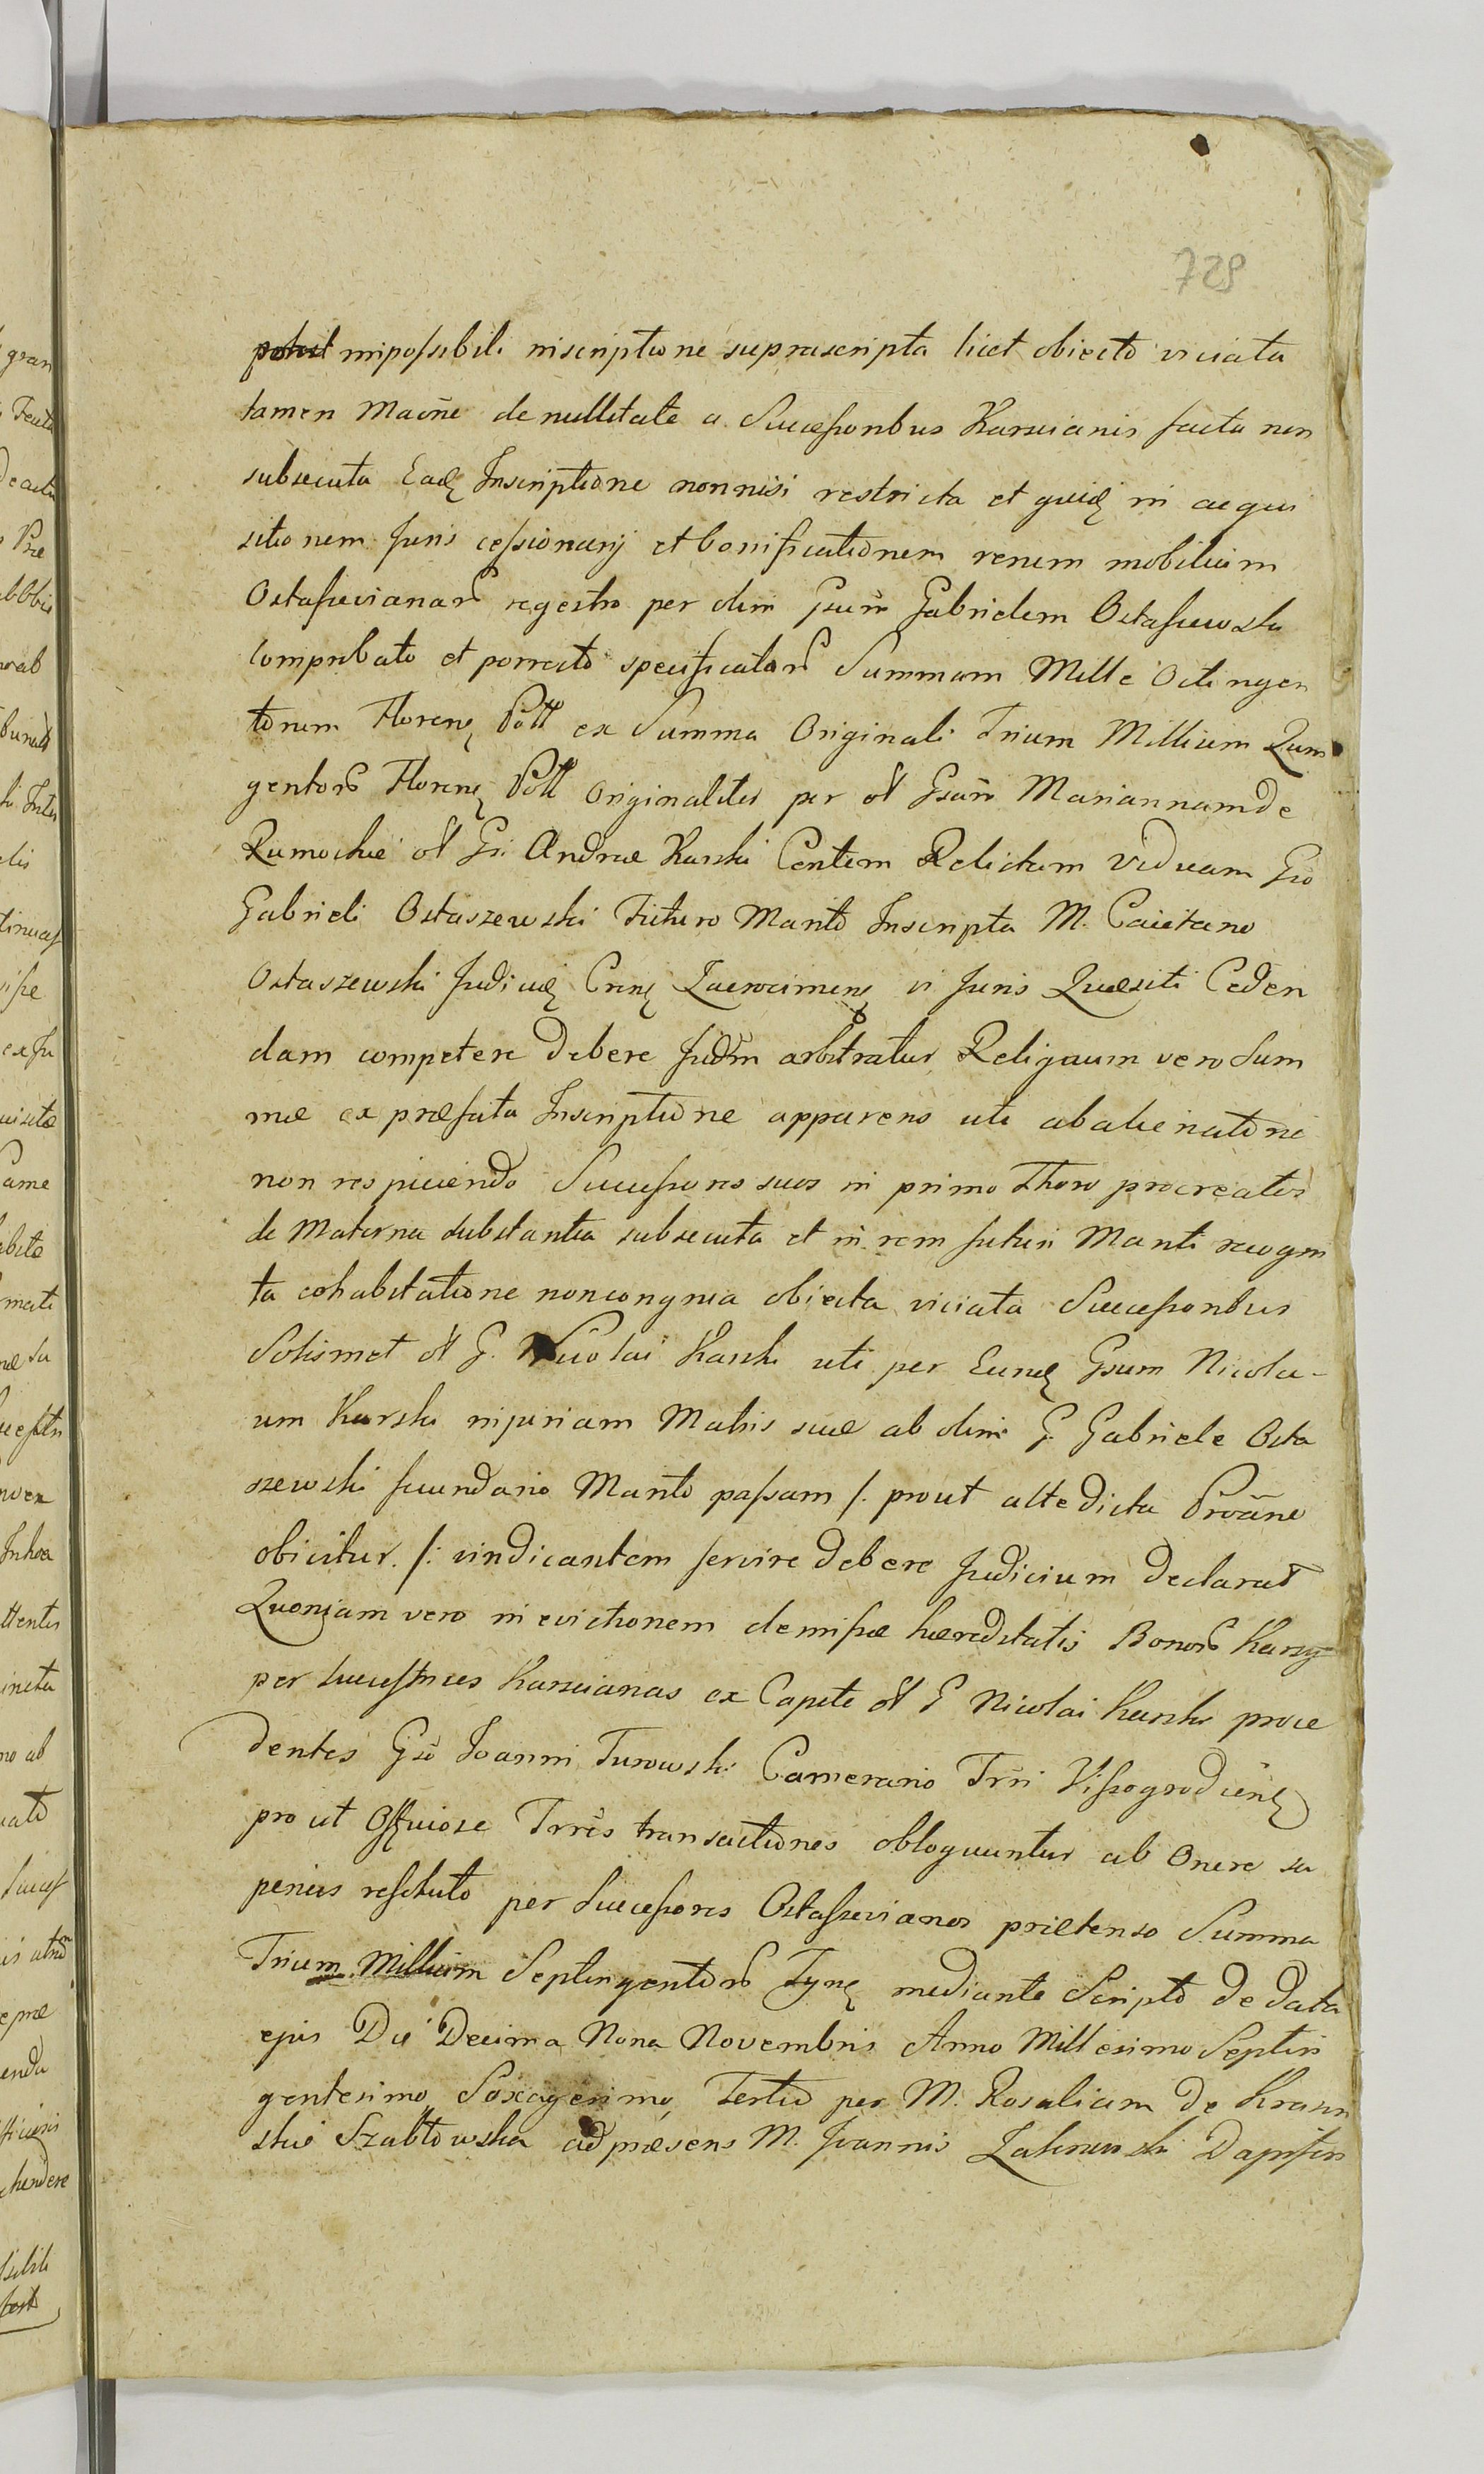 729
impossibili inscriptione suprascripta licet obiecto viciata
tamen Maoñe de nullitate a Successoribus Karscianis facta non
subsecuta Eadʒ Inscriptione nonnisi restricta et quidʒ in acqui
sitionem Juris cessionarij et bonificationem rerum mobilium
Ostaszevianarũ regestro per olim Gsum Gabrielem Ostaszewski
comprobato et porrecto specificatarũ Summam Mille Octingen
torum Florenʒ Poll ex Summa Originali Trium Millium Quin
gentorũ Florenʒ Poll Originaliter per ol Gsam Mariannam de
Rumockie ol Gsi Andreæ Karski Contem Relictam Viduam Gso
Gabrieli Ostaszewski Futuro Marito Inscripta M. Caietano
Ostaszewski Judici Crñʒ Zacrocimenʒ vi Juris Quæsiti Ceden
dam competere debere Judm arbitratur Reliquum vero Sum
mæ ex præfata Inscriptione apparens uti abalienatione
non respiciendo Successores suos in primo Thoro procreatos
de Materna substantia subsecuta et in rem futuri Mariti recogni
ta cohabitatione noncongrua obiecta viciata Successoribus
Solismet ol G. Nicolai Karski uti per Eundʒ Gsum Nicola-
um Karski injuriam Matris suæ ab olim G. Gabriele Osta
szewski secundario Marito passam /: prout altedicta Proãne
obicitur. /: vindicantem servire debere Judicium declarat
Quoniam vero in evictionem demissæ hæreditatis Bonorũ Karsy
per Successtrices Karscianas ex Capite ol G Nicolai Karski proce
dentes Gso Joanni Turowski Camerario Trri Vissogrodienʒ
prout Officiose Trres transactiones obloquuntur ab Onere su
perius resoluto per Successores Ostaszevianos prætenso Summa
Trium Millium Septingentorũ Tynʒ mediante Scripto de data
ejus Die Decima Nona Novembris Anno Millesimo Septin
gentesimo Sexagesimo Tertio per M. Rosaliam de Krasin
skie Szabłowska ad præsens M. Joannis Zakrzewski Dapiferi